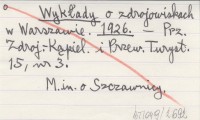 Wykłady o zdrojowiskach
w Warszawie. 1926. — Prz.
Zdroj-Kąpiel. i Przew. Turyst.
15, nr 3.
M. in. o Szczawnicy.